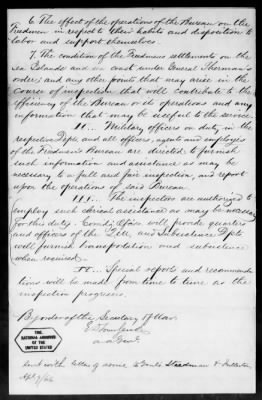 6. The effect of the operations of the Bureau on the
Freedmen in respect to their habits and disposition to
labor and support themselves.
7. The condition of the Freedmens settlements on the
sea Islands and sea coast under General Sherman's
orders; and any other points that may arise in the
course of inspection that will contribute to the
efficiency of the Bureau or its operations and any
information that may be useful to the service
11... Military officers on duty in the
respective Depts. and all officers, agents and employes
of the Freedmen's Bureau are directed to furnish
such information and assistance as may be
necessary to a full and fair inspection, and report
upon the operations of said Bureau.
111... The inspectors are authorized to
employ such clerical assistance as may be necessary
for this duty. Comdg. officers will provide quarters
and officers of the and Subsistence Depts
will furnish transportation and subsistence
when required.
Special reports and recommenda
tions will be made from time to time as the
inspection progresses.
By order of the Secretary of War
E D Townsend
a.a. Genl.
THE
NATIONAL ARCHIVES
OF THE
UNITED STATES
Sent with letter of advice to Genls Steedman & Fullerton
Apl 7/66